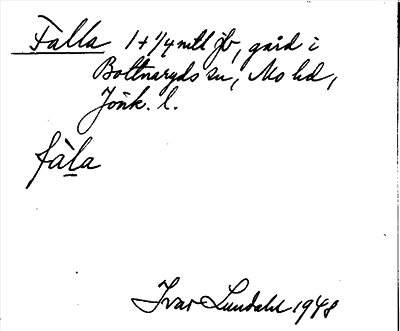 Falla 1+1/4 mtl jb, gård i
Bottnaryds sn, Mo hd,
Jönk. l.
fàla
Ivar Lundahl 1948